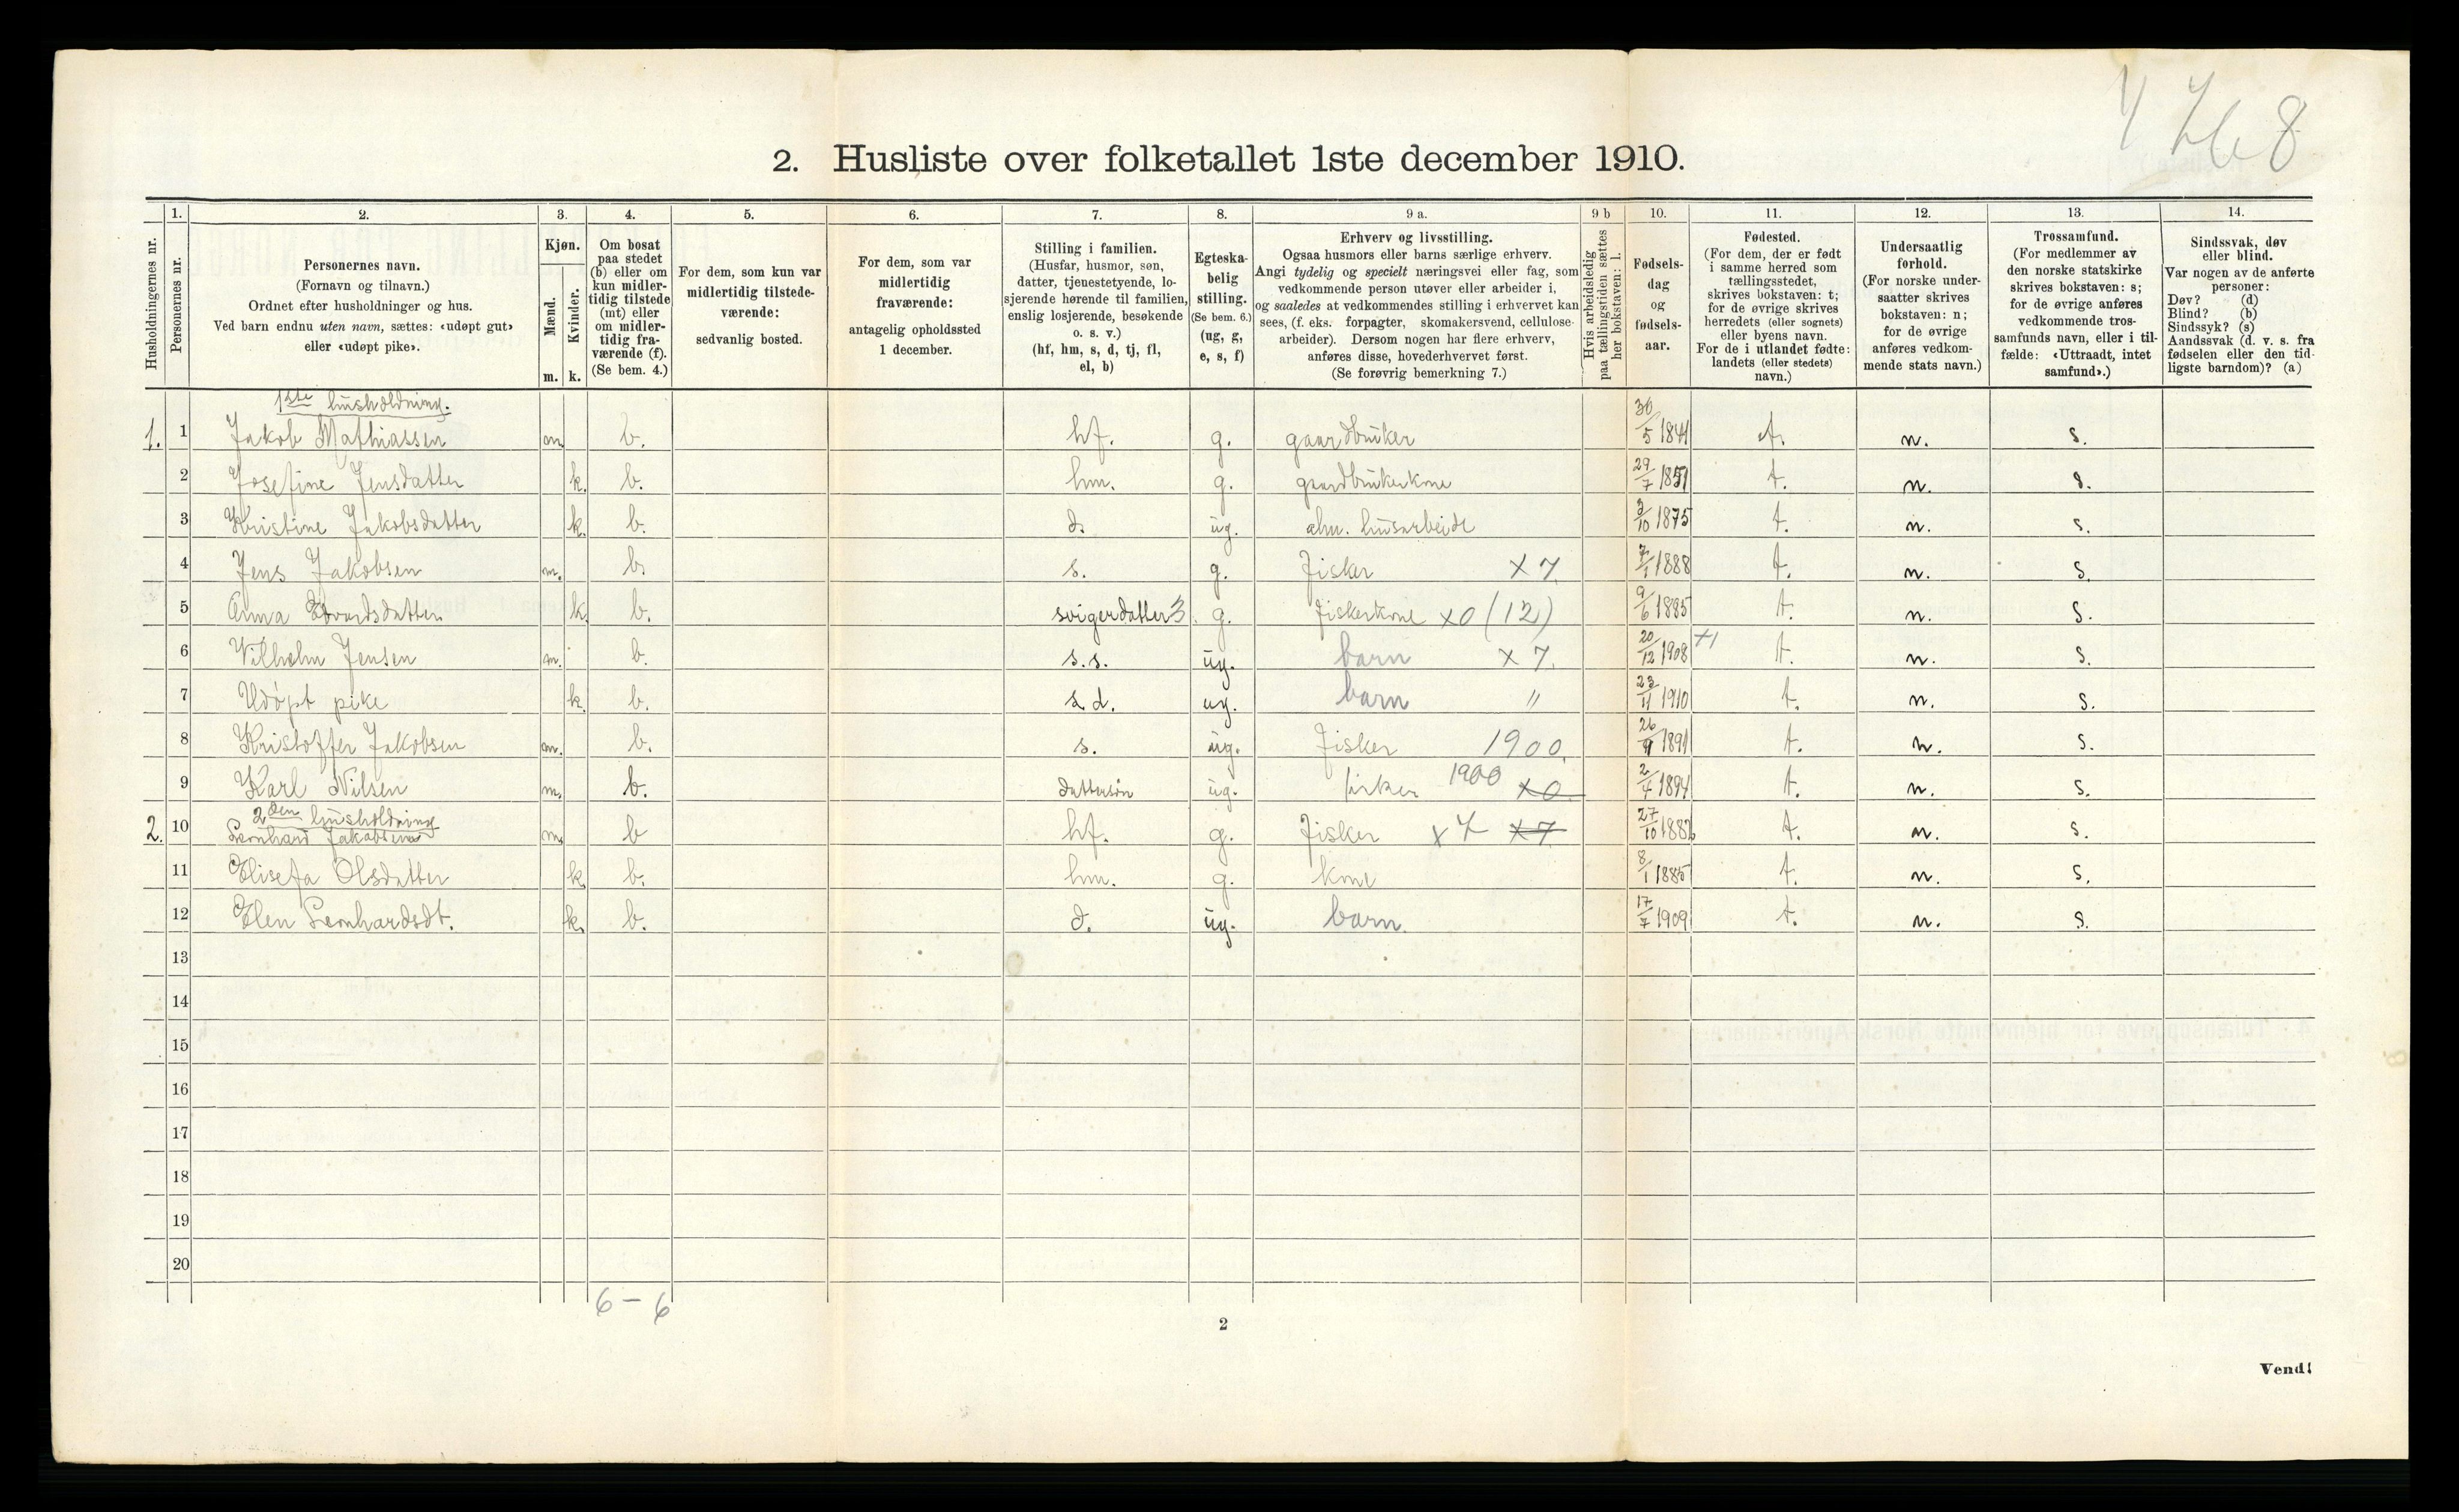 4 768
2. Husliste over folketallet 1ste december 1910.
1. 2. 3. 4. 5. 6. 7. 8. 9 a. 9 b 10. 11. 12. 13. 14.
Husholdningernes nr.
Personernes nr.
Personernes navn.
(Fornavn og tilnavn.)
Ordnet efter husholdninger og hus.
Ved barn endnu uten navn, sættes: «udøpt gut»
eller «udøpt pike».
Kjøn.
Mænd.
Kvinder.
m. k.
Om bosat
paa stedet
(b) eller om
kun midler-
tidig tilstede
(mt) eller
om midler-
tidig fra-
værende (f).
(Se bem. 4.)
For dem, som kun var
midlertidig tilstede-
værende:
sedvanlig bosted.
For dem, som var
midlertidig
fraværende:
antagelig opholdssted
1 december.
Stilling i familien.
(Husfar, husmor, søn,
datter, tjenestetyende, lo-
sjerende hørende til familien,
enslig losjerende, besøkende
o. s. v.)
(hf, hm, s, d, tj, fl,
el, b)
Egteska-
belig
stilling.
(Se bem. 6.)
(ug, g,
e, s, f)
Erhverv og livsstilling.
Ogsaa husmors eller barns særlige erhverv.
Angi tydelig og specielt næringsvei eller fag, som
vedkommende person utøver eller arbeider i,
og saaledes at vedkommendes stilling i erhvervet kan
sees, (f. eks. forpagter, skomakersvend, cellulose-
arbeider). Dersom nogen har flere erhverv,
anføres disse, hovederhvervet først.
(Se forøvrig bemerkning 7.)
Hvis arbeidsledig
paa tællingstiden sættes
her bokstaven: l.
Fødsels-
dag
og
fødsels-
aar.
Fødested.
(For dem, der er født
i samme herred som
tællingsstedet,
skrives bokstaven: t;
for de øvrige skrives
herredets (eller sognets)
eller byens navn.
For de i utlandet fødte:
landets (eller stedets)
navn.)
Undersaatlig
forhold.
(For norske under-
saatter skrives
bokstaven: n;
for de øvrige
anføres vedkom-
mende stats navn.)
Trossamfund.
(For medlemmer av
den norske statskirke
skrives bokstaven: s;
for de øvrige anføres
vedkommende tros-
samfunds navn, eller i til-
fælde: «Uttraadt, intet
samfund».)
Sindssvak, døv
eller blind.
Var nogen av de anførte
personer:
Døv? (d)
Blind? (b)
Sindssyk? (s)
Aandssvak (d. v. s. fra
fødselen eller den tid-
ligste barndom)? (a)
1ste husholdning.
1. 1 Jakob Mathiassen m b. hf. g. gaardbruker 30/5 1841 t. n. s.
2 Josefine Jensdatter k. b. hm. g. gaardbrukerkone 29/7 1851 t. n. s.
3 Kristine Jakobsdatter k. b. d. ug. alm. husarbeide 3/10 1875 t. n. s.
4 Jens Jakobsen m. b. s. g. Fisker x 7 7/1 1888 t. n. s.
5 Anna Edvardsdatter k. b. svigerdatter 3 g. fiskerkone x0 (12) 9/6 1885 t. n. s.
6 Vilhelm Jensen m. b. s.s. ug. barn x 7. 20/12 1908 +1 t. n. s.
7 Udøpt pike k. b. s.d. ug. barn " 23/11 1910 t. n. s.
8 Kristoffer Jakobsen m. b. s. ug. Fisker 1900. 26/9 1891 t. n. s.
9 Karl Nilsen m. b. dattersøn ug. fisker 1900 x0 2/4 1894 t. n. s.
2den husholdning
2. 10 Lernhard Jakobsen m. b hf. g. Fisker x 7 x 7 27/10 1882 t. n. s.
11 Elisefa Olsdatter k. b. hm. g. kone 8/1 1885 t. n. s.
12 Elen Lernhardsdt. k. b. d. ug. barn. 17/7 1909 t. n. s.
13
14
15
16
17
18
19
20
6 – 6
2
Vend!